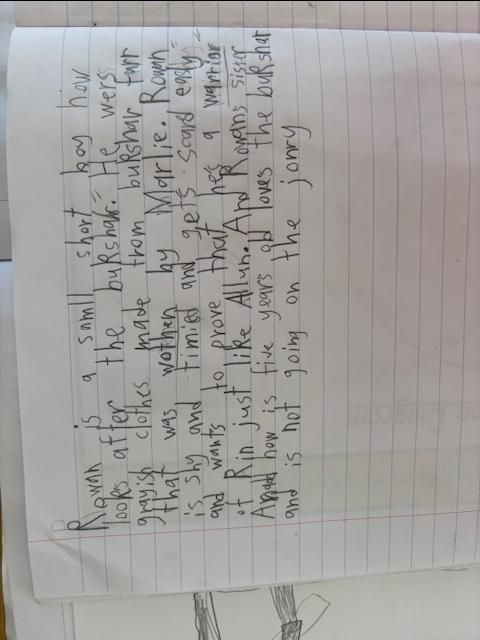 Rowan is a samll short boy how
looks after the bukshah." He wers
grayish clothes made from bukshar furr
that was wothen by Marlie. Rowan
is shy and timied and gets scard easly"
and wants to prove that he's a warrior
of Rin just like Allun. And Rowans sister
Annad how is five years old loves the bukshar
and is not going on the jonry